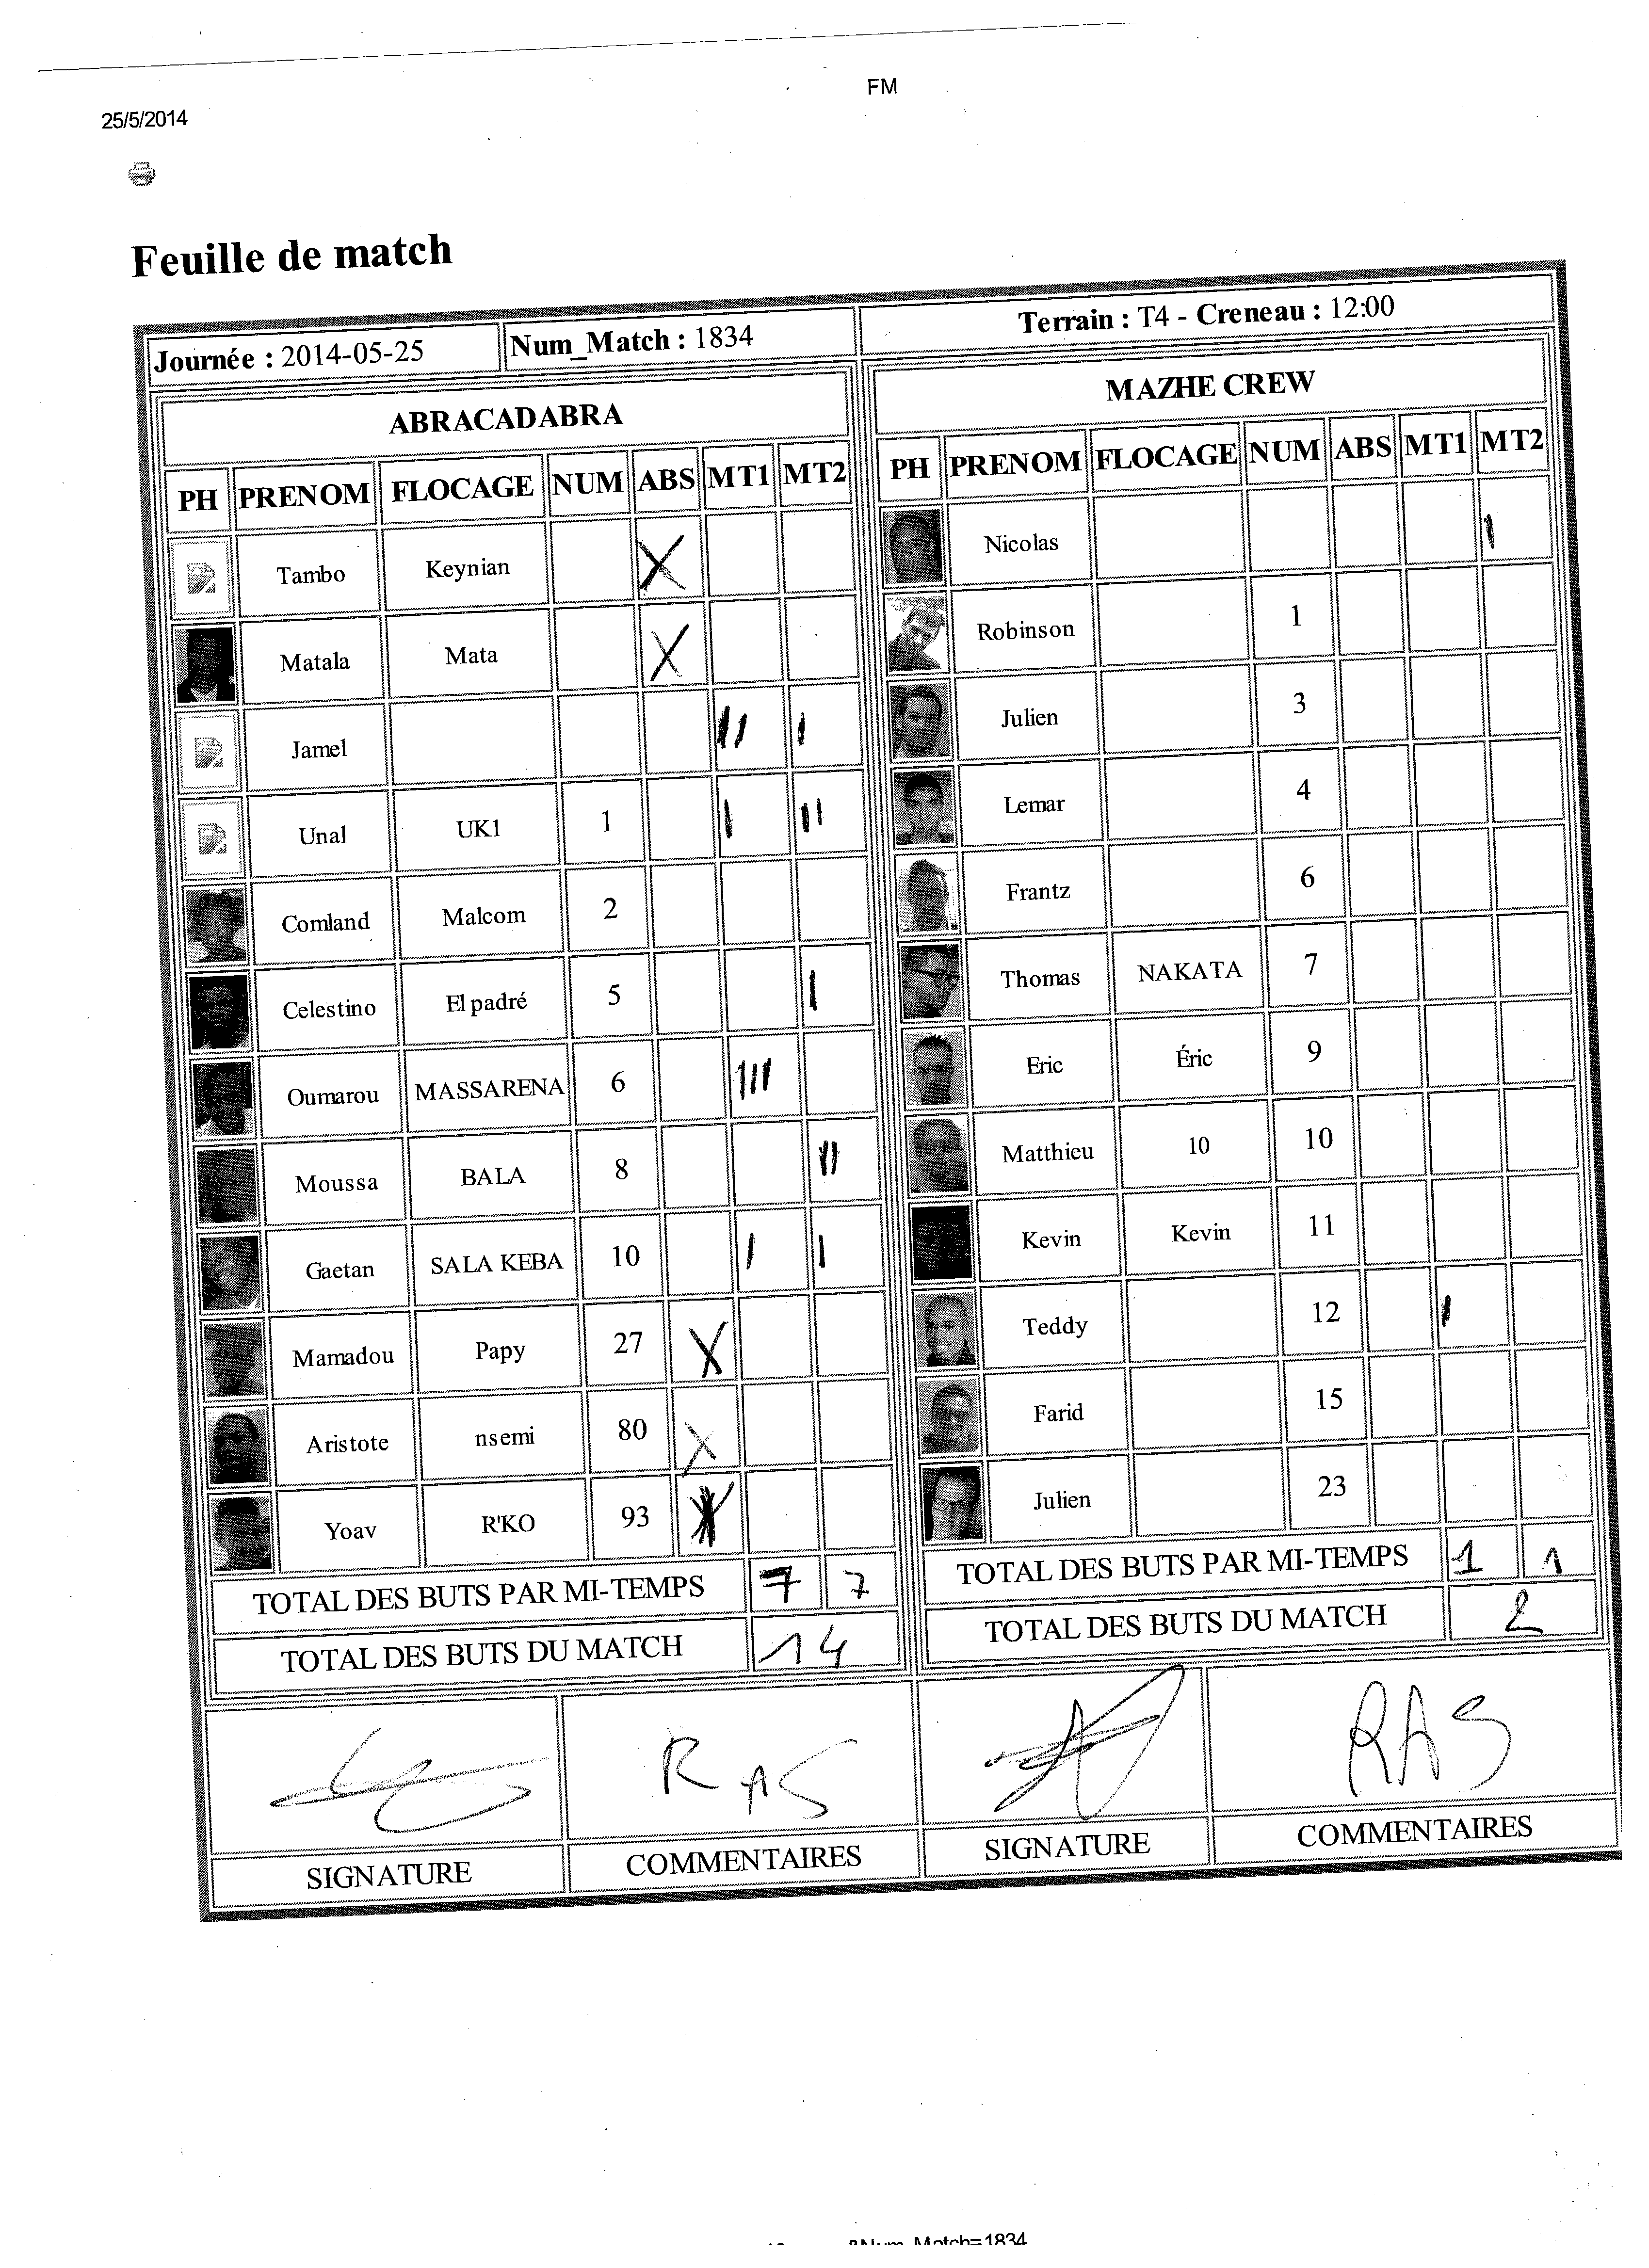 FM
25/5/2014
Feuille de match
Journée : 2014-05-25 Num_Match : 1834 Terrain : T4 - Creneau : 12:00
ABRACADABRA
PH PRENOM FLOCAGE NUM ABS MT1 MT2
Tambo Keynian X
Matala Mata X
Jamel II I
Unal UK1 1 I II
Comland Malcom 2
Celestino El padré 5 I
Oumarou MASSARENA 6 III
Moussa BALA 8 II
Gaetan SALA KEBA 10 I I
Mamadou Papy 27 X
Aristote nsemi 80 X
Yoav R'KO 93 X
TOTAL DES BUTS PAR MI-TEMPS 7 7
TOTAL DES BUTS DU MATCH 14
RAS
SIGNATURE COMMENTAIRES
MAZHE CREW
PH PRENOM FLOCAGE NUM ABS MT1 MT2
Nicolas I
Robinson 1
Julien 3
Lemar 4
Frantz 6
Thomas NAKATA 7
Eric Éric 9
Matthieu 10 10
Kevin Kevin 11
Teddy 12 I
Farid 15
Julien 23
TOTAL DES BUTS PAR MI-TEMPS 1 1
TOTAL DES BUTS DU MATCH 2
RAS
SIGNATURE COMMENTAIRES
&Num_Match=1834